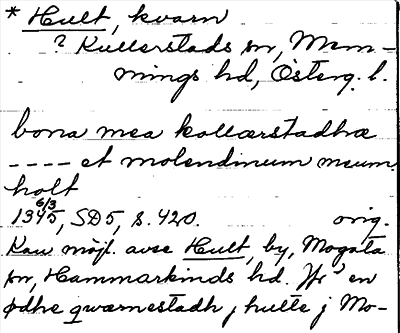 * Hult, kvarn
? Kullerstads sn, Mem-
mings hd, Österg. l.
bona mea kollærstadhæ
---- et molendinum meum
holt
1345 6/3, SD5, s. 420. orig.
Kan möjl. avse Hult, by, Mogata
sn, Hammarkinds hd. Jfr en
ødhe qwærnestadh j hulte j Mo-